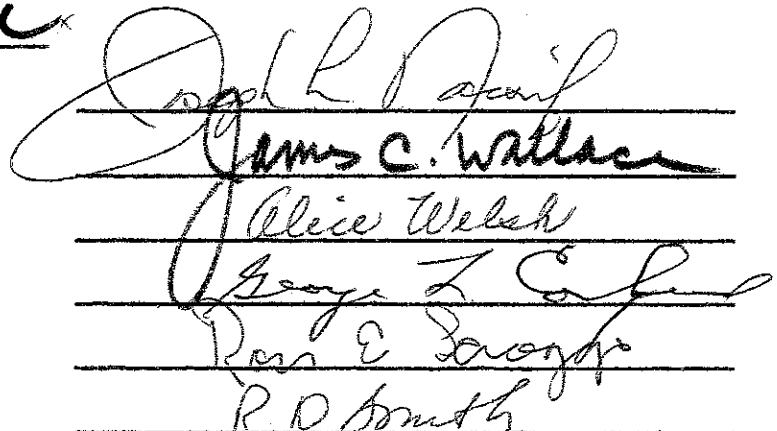 Joseph L.
James C. Wallace
Alice Welsh
George L
Ross E Scroggs
R. D Smith